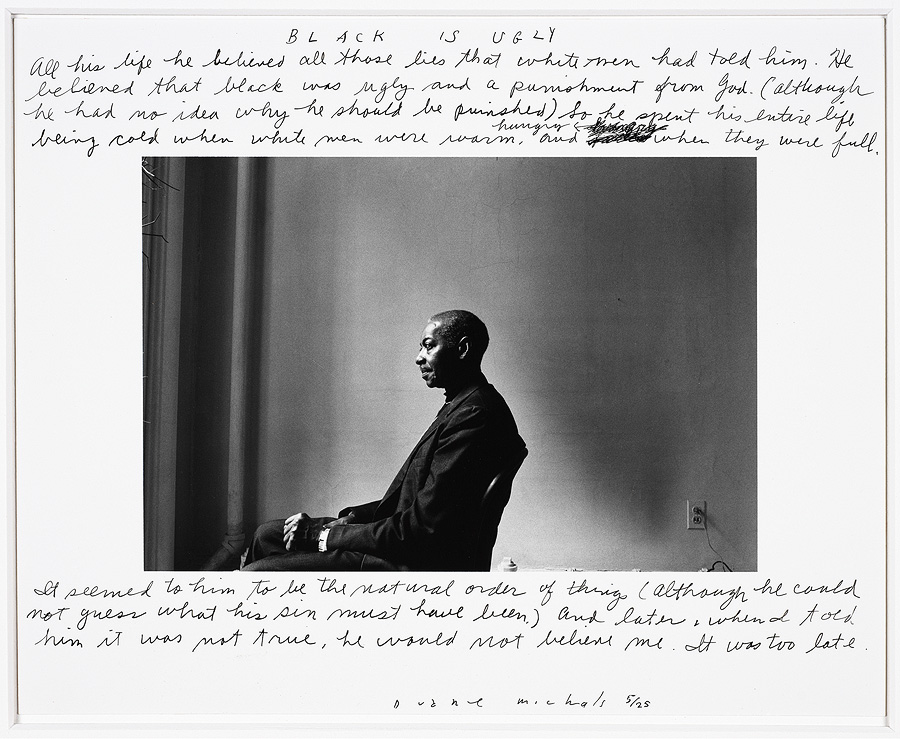 BLACK IS UGLY
All his life he believed all those lies that white men had told him. He
believed that black was ugly and a punishment from God. (although
he had no idea why he should be punished) So he spent his entire life
being cold when white men were warm, and hungry when they were full.
It seemed to him to be the natural order of things (although he could
not guess what his sin must have been.) And later, when I told
him it was not true, he would not believe me. It was too late.
Duane Michals 5/25